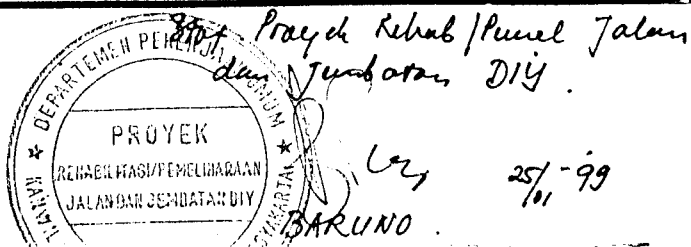 Staf Proyek Rehab/Pemel Jalan
dan Jembatan DIY.
DEPARTEMEN PEKERJAAN UMUM
PROYEK
REHABILITASI/PEMELIHARAAN
JALAN DAN JEMBATAN DIY
25/01-99
BARUNO.